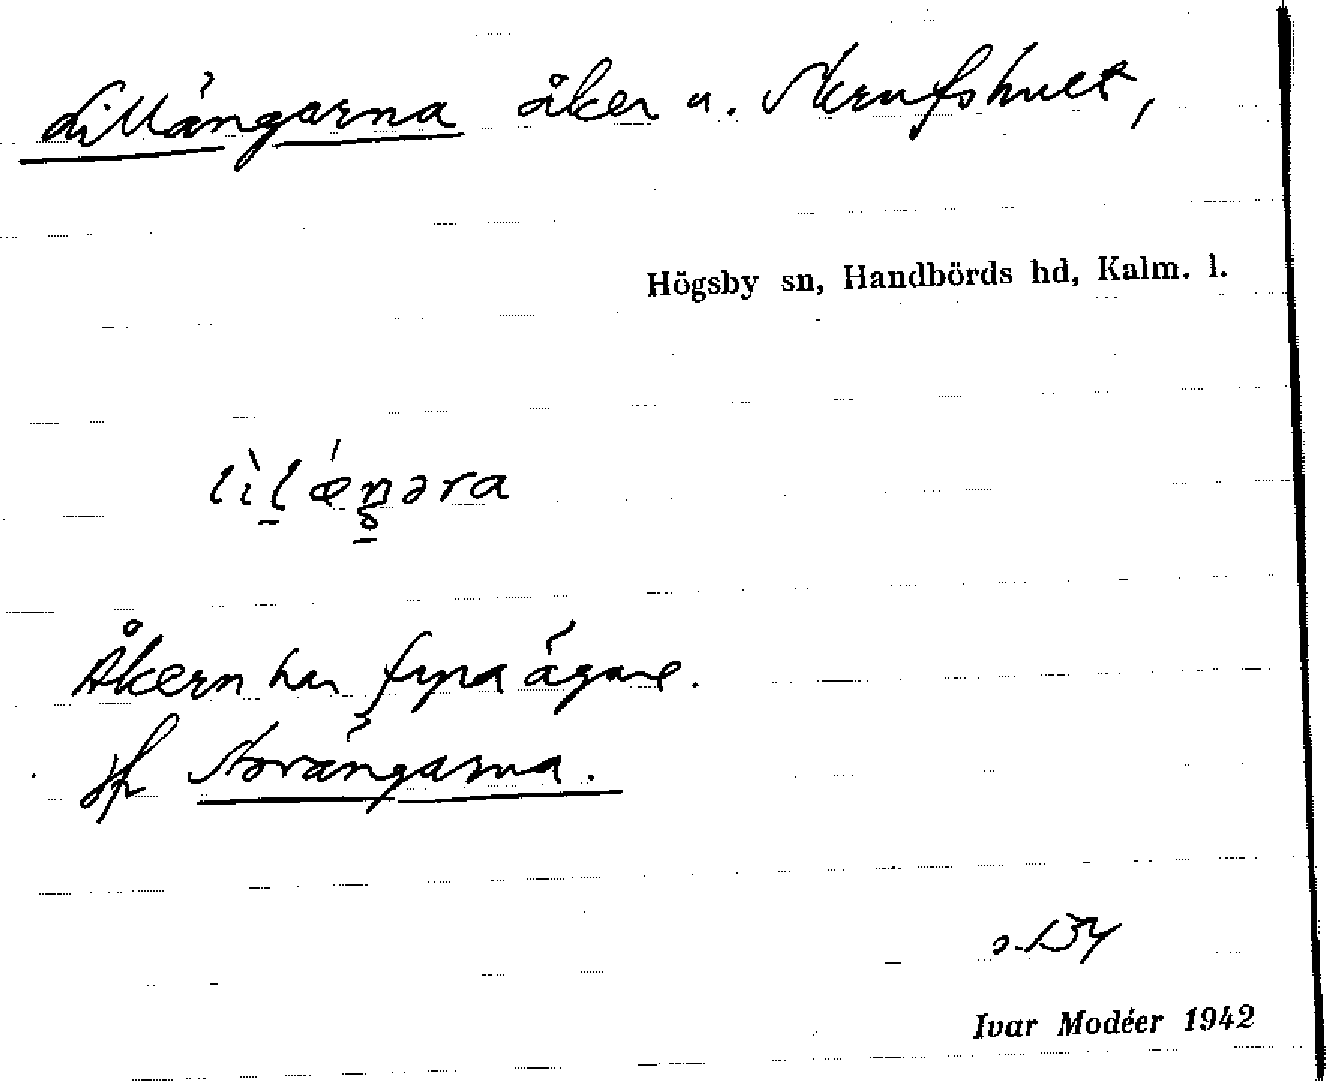 Lillängarna åker u. Skrufshult,
Högsby sn, Handbörds hd, Kalm. l.
Åkern har fyra ägare.
Jfr Storängarna.
Ivar Modéer 1942